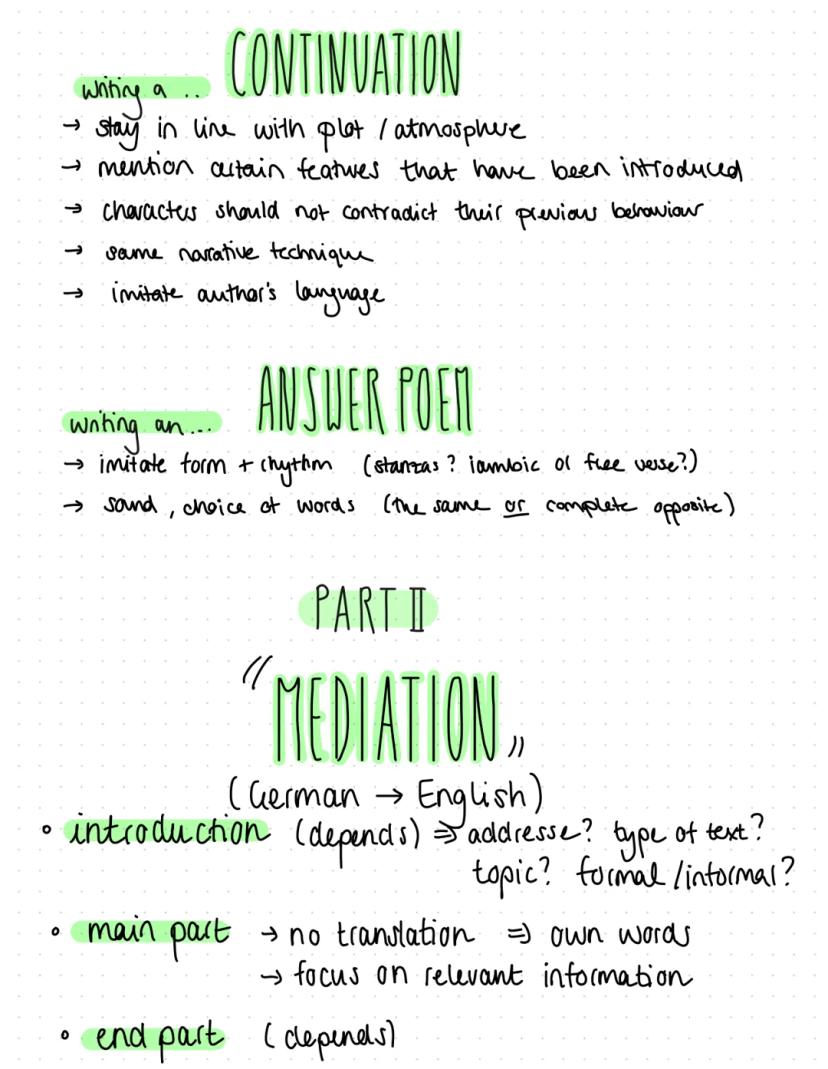 writing a .. CONTINUATION
→ stay in line with plot / atmosphere
→ mention certain features that have been introduced
→ characters should not contradict their previous behaviour
→ same narrative technique
→ imitate author's language
writing an... ANSWER POEM
→ imitate form + rhythm (stanzas? iambic or free verse?)
→ sound, choice of words (the same or complete opposite)
PART II
"MEDIATION"
(German → English)
• introduction (depends) ⇒ addresse? type of text?
topic? formal/informal?
• main part → no translation ⇒ own words
→ focus on relevant information
• end part (depends)